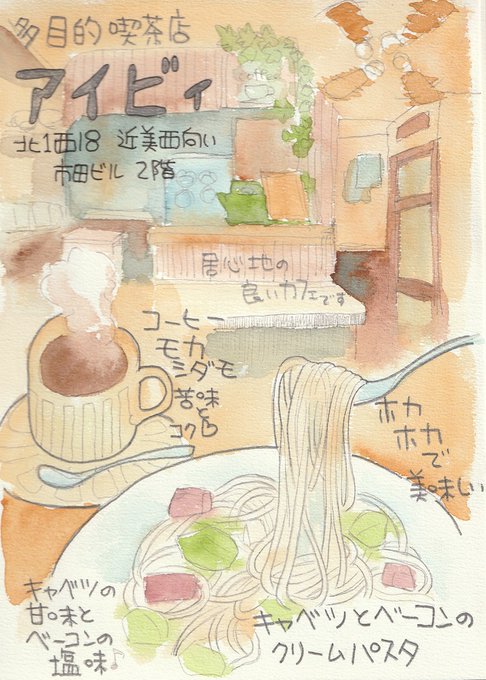 多目的喫茶店
アイビィ
北1西18 近美西向い
市田ビル 2階
居心地の
良いカフェです
コーヒー
モカ
シダモ
苦味
と
コク
ホカ
ホカ
で
美味しい
キャベツの
甘味と
ベーコンの
塩味♪
キャベツとベーコンの
クリームパスタ